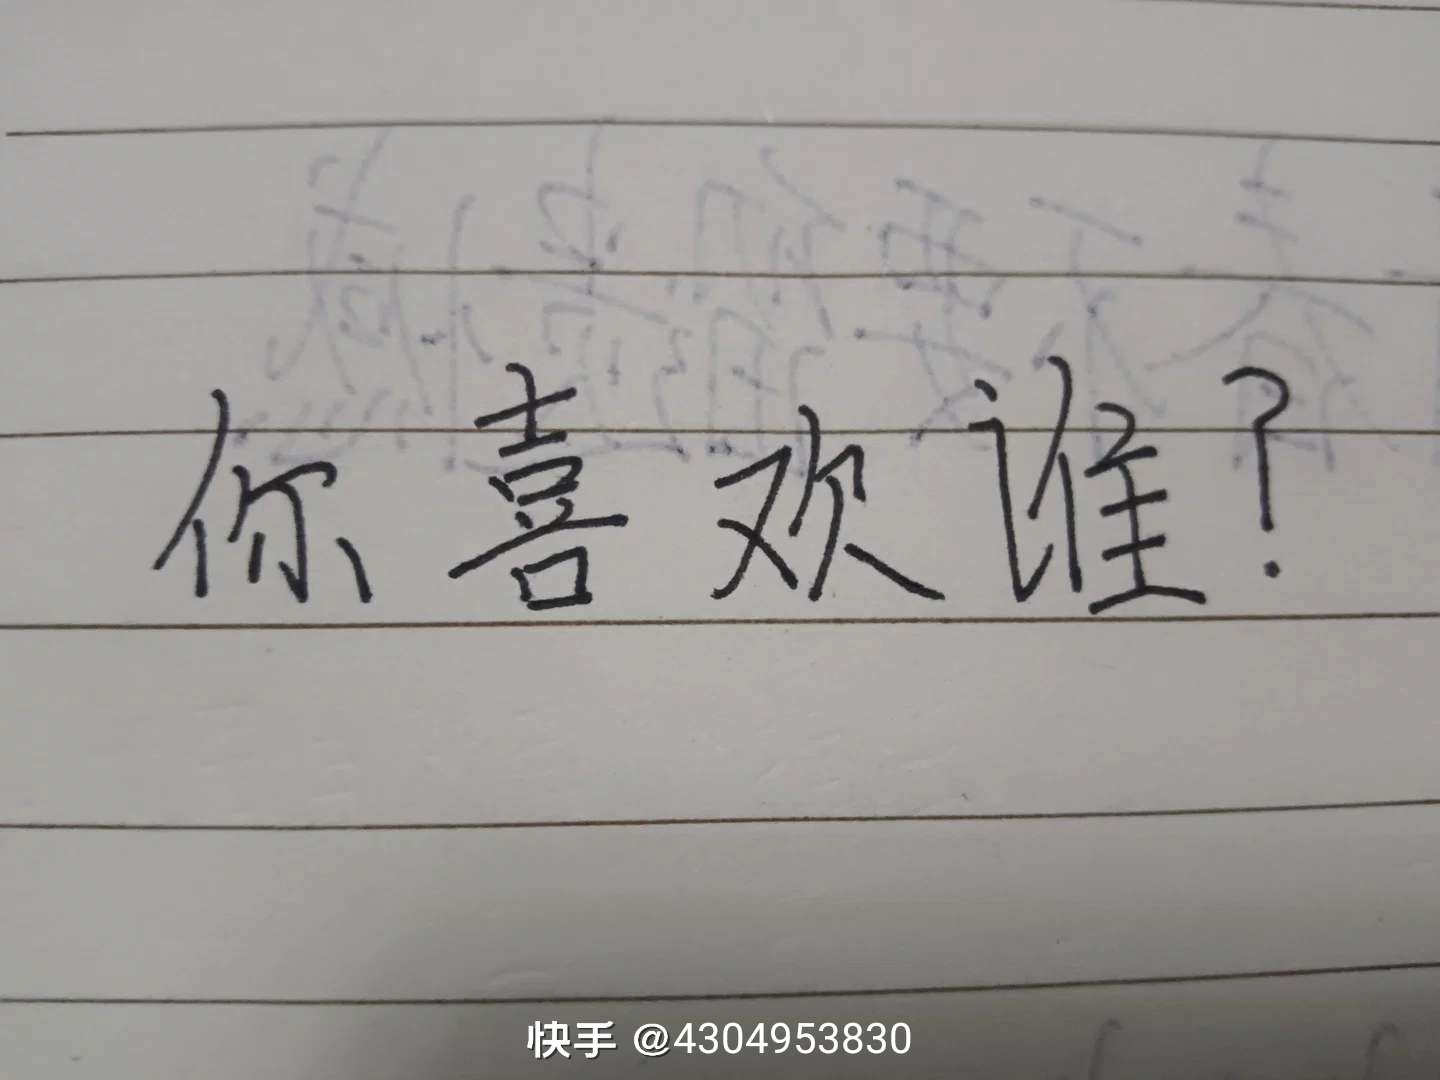 你喜欢谁?
快手 @4304953830